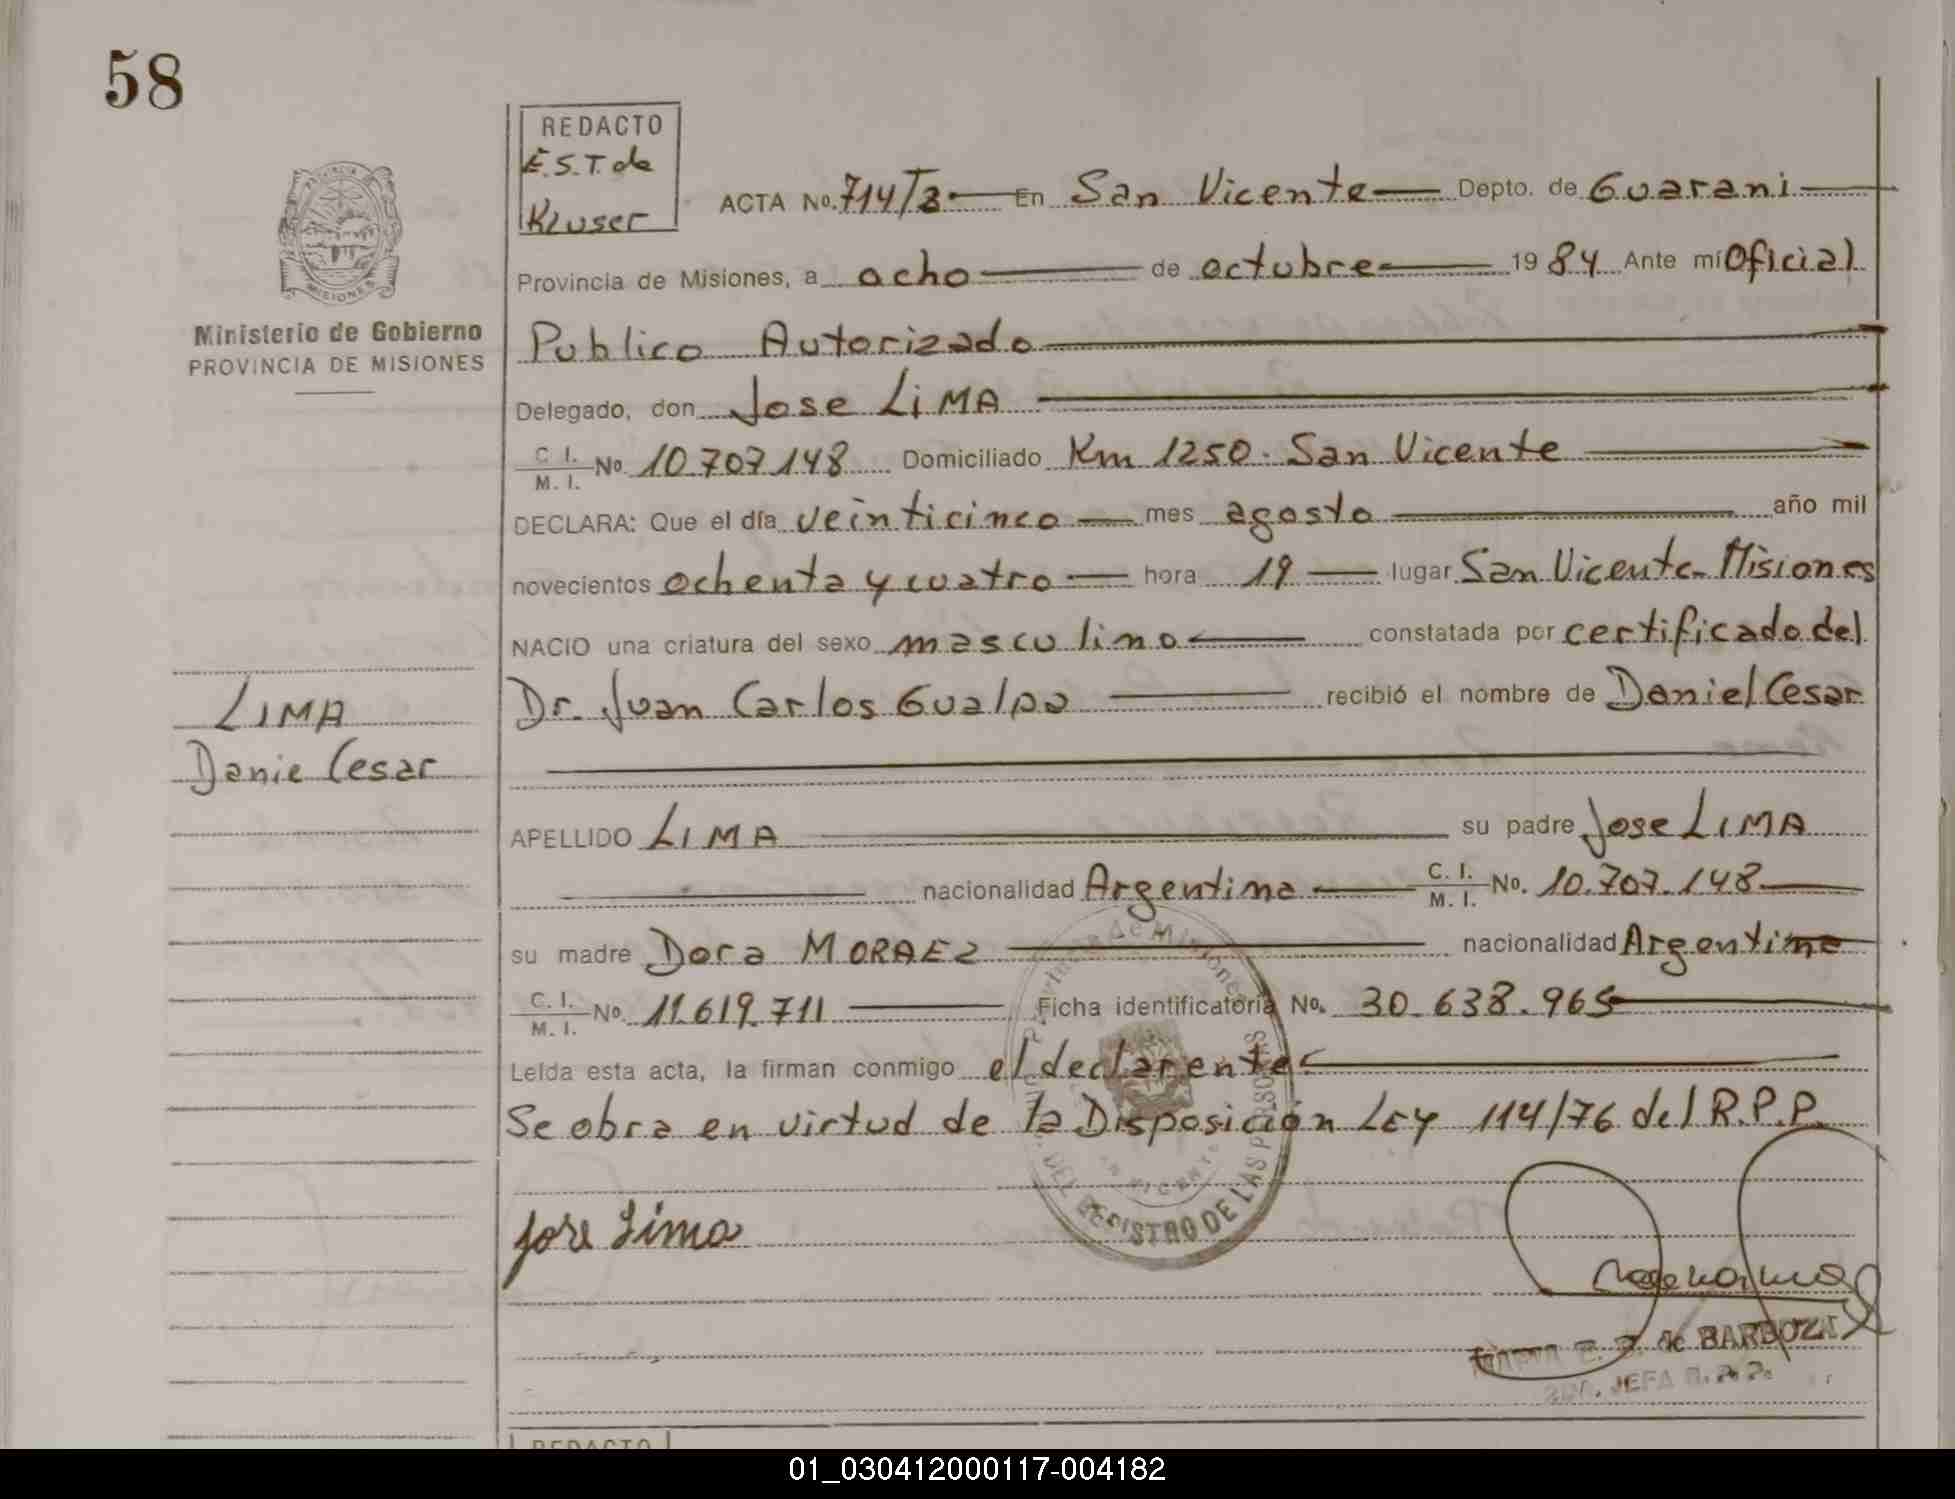 58
REDACTO
E.S.T. de
Kluser
ACTA No. 714/T3 En San Vicente Depto. de Guarani
Provincia de Misiones, a ocho de octubre 1984 Ante mí Oficial
Ministerio de Gobierno
PROVINCIA DE MISIONES
Publico Autorizado
Delegado, don Jose LiMA
C. I.
M. I. No 10.707.148 Domiciliado Km 1250. San Vicente
DECLARA: Que el día veinticinco mes agosto año mil
novecientos ochenta y cuatro hora 19 lugar San Vicente-Misiones
NACIO una criatura del sexo masculino constatada por certificado del
LIMA
Danie Cesar
Dr. Juan Carlos Gualpa recibió el nombre de Daniel Cesar
APELLIDO LIMA su padre Jose LIMA
nacionalidad Argentina C. I.
M. I. No. 10.707.148
su madre Dora MORAEZ nacionalidad Argentina
C. I.
M. I. No. 11.619.711 Ficha identificatoria No. 30.638.965
Leída esta acta, la firman conmigo el declarante
Se obra en virtud de la Disposición LEY 114/76 del R.P.P.
Provincia de Misiones
DEL REGISTRO DE LAS PERSONAS
SAN VICENTE
Jose Lima
MARIA E. B. de BARBOZA
JEFA R.P.P.
REDACTO
01_030412000117-004182